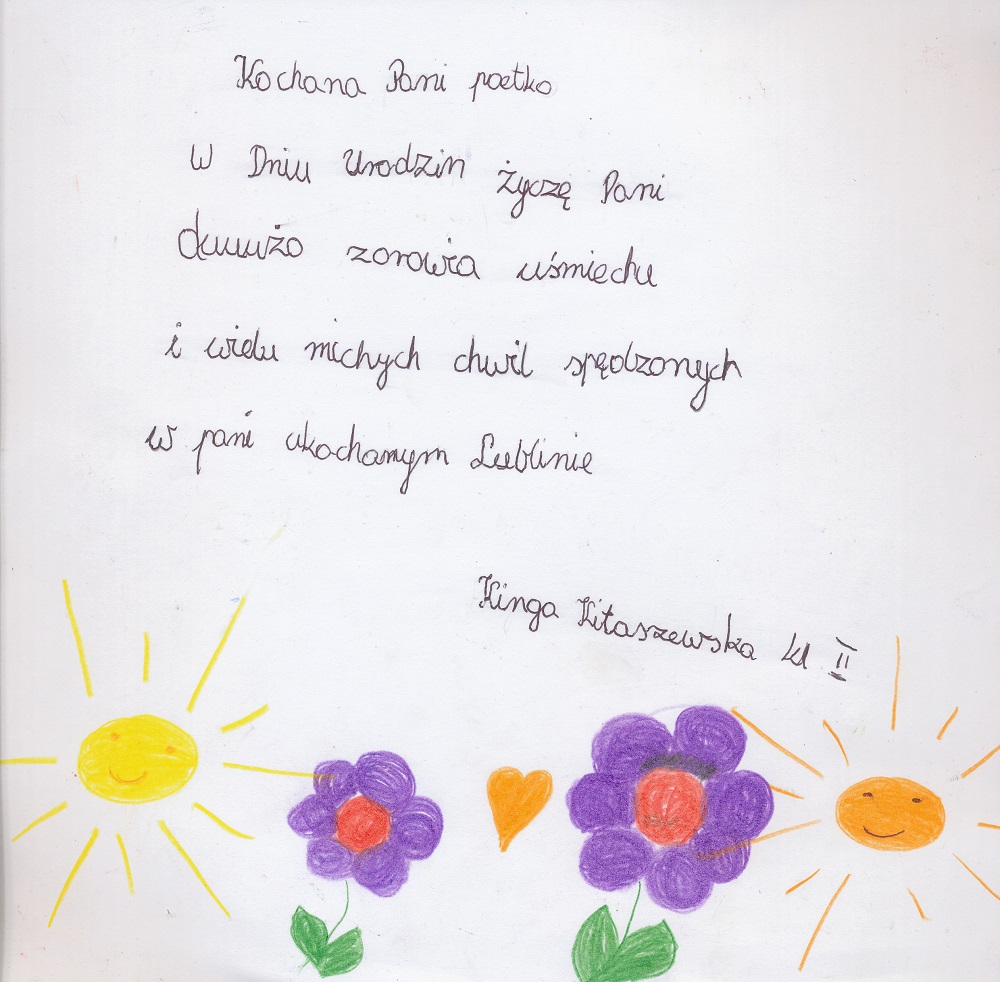 Kochana Pani poetko
W Dniu Urodzin życzę Pani
duuużo zdrowia uśmiechu
i wielu miłych chwil spędzonych
w pani ukochanym Lublinie
Kinga Kitaszewska kl II